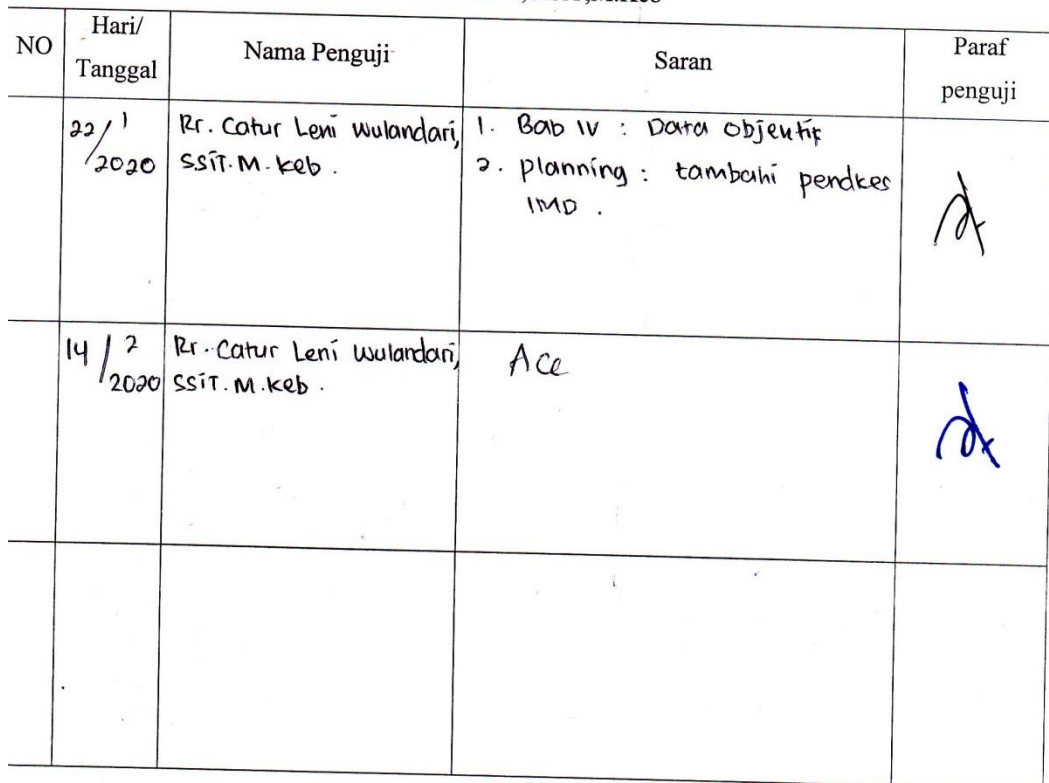 NO
Hari/
Tanggal
Nama Penguji
Saran
Paraf
penguji
22/1
2020
Rr. Catur Leni Wulandari,
SSiT. M. Keb.
1. Bab IV : Data Objektif
2. planning : tambahi pendkes
IMD .
14/2
2020
Rr. Catur Leni Wulandari,
SSiT. M. Keb.
Acc